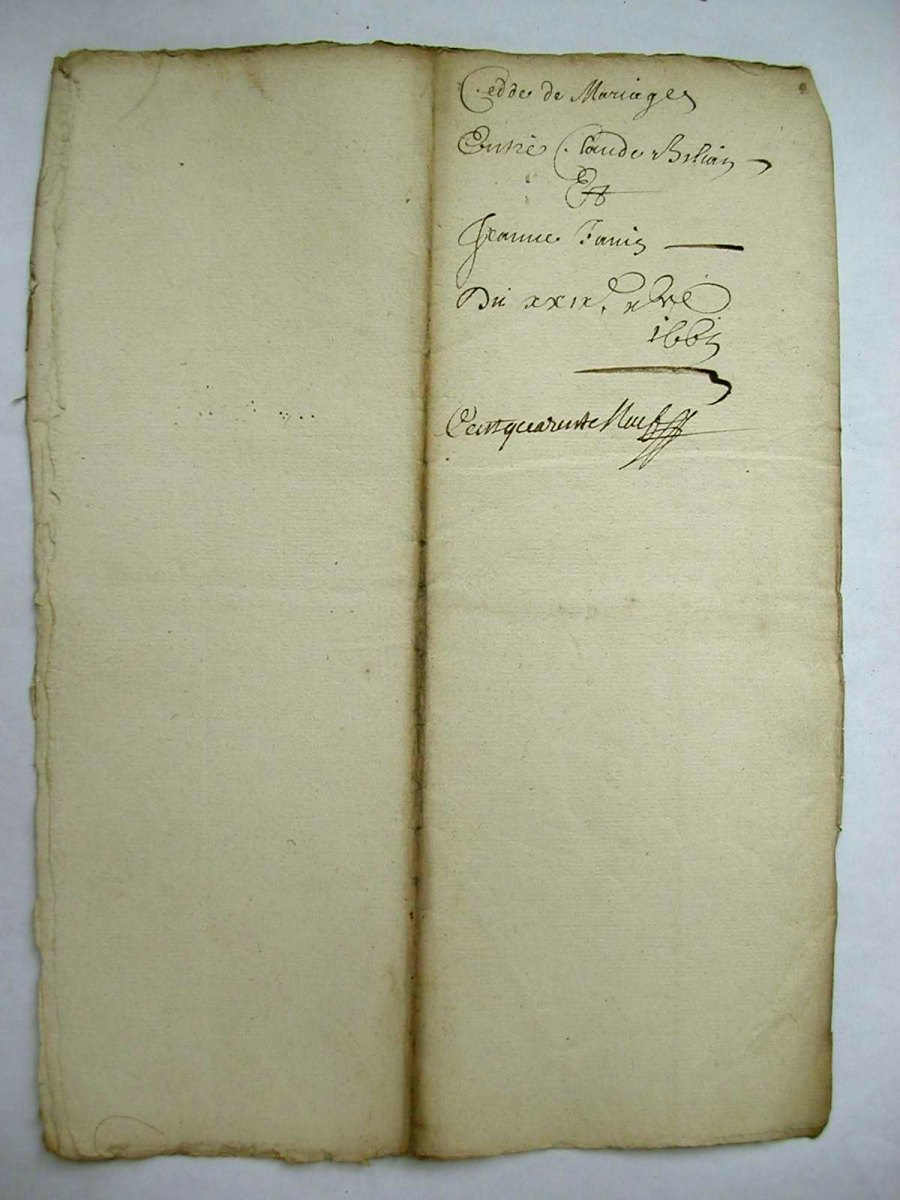 Cedde de Mariage
Entre Claude
Et
Jeanne
Du xxix.e 9bre
1661
Cent quarente Neuf